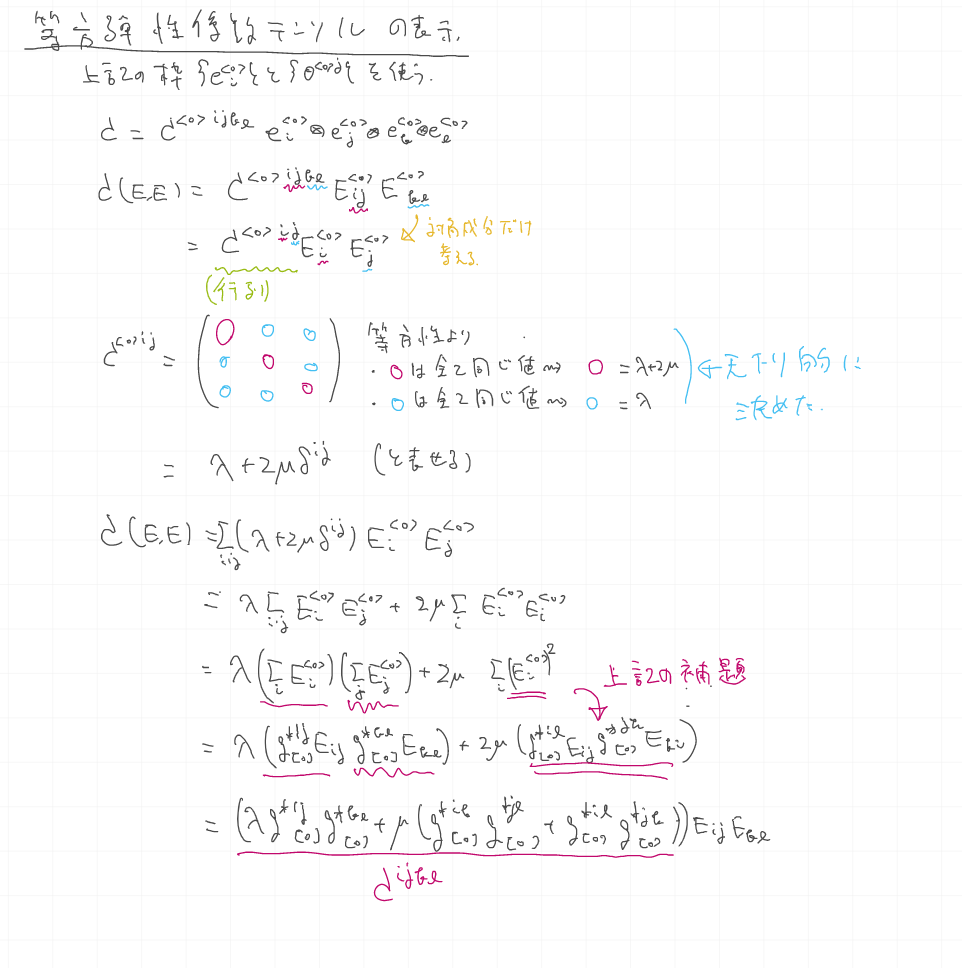 等方弾性係数テンソルの表示.
上記の枠 {e_i^<0>} と {θ^<0>i} を使う.
C = C^<0>ijkl e_i^<0> ⊗ e_j^<0> ⊗ e_k^<0> ⊗ e_l^<0>
C(E,E) = C^<0>ijkl E_ij^<0> E_kl^<0>
= C^<0>ij E_i^<0> E_j^<0> ← 対角成分だけ
考える.
(行列)
C^<0>ij = ( ○ ○ ○ 等方性より
○ ○ ○ ・○は全て同じ値 ⇝ ○ = λ+2μ ← 天下り的に
○ ○ ○ ) ・○は全て同じ値 ⇝ ○ = λ 決めた.
= λ+2μδ^ij (と表せる)
C(E,E) = Σ_i,j (λ+2μδ^ij) E_i^<0> E_j^<0>
= λ Σ_i,j E_i^<0> E_j^<0> + 2μ Σ_i E_i^<0> E_i^<0>
= λ (Σ_i E_i^<0>) (Σ_j E_j^<0>) + 2μ Σ_i (E_i^<0>)^2 上記の補題
= λ (g_[0]^*ij E_ij g_[0]^*kl E_kl) + 2μ (g_[0]^*il E_ij g_[0]^*jk E_kl)
= (λ g_[0]^*ij g_[0]^*kl + μ (g_[0]^*ik g_[0]^*jl + g_[0]^*il g_[0]^*jk)) E_ij E_kl
C^ijkl